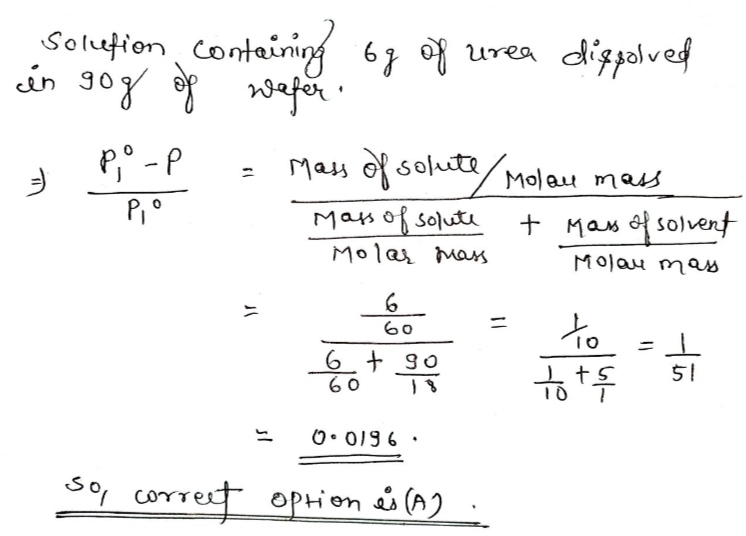 Solution containing 6g of urea dissolved
in 90g of water.
⇒ P₁⁰ - P / P₁⁰ = Mass of solute / Molar mass / Mass of solute / Molar mass + Mass of solvent / Molar mass
= 6/60 / 6/60 + 90/18 = 1/10 / 1/10 + 5/1 = 1/51
= 0.0196.
So, correct option is (A).